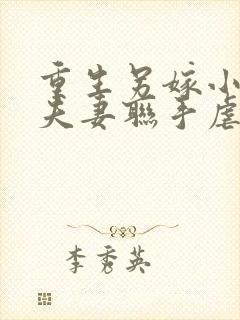 重生另嫁小
夫妻聯手虐
李秀英